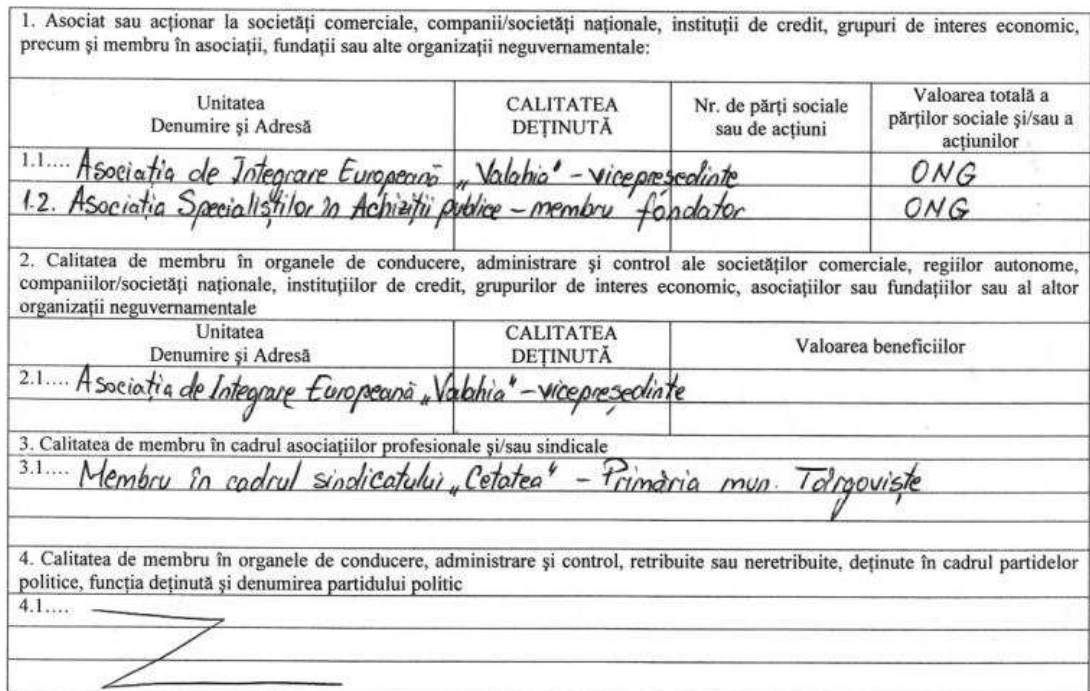 1. Asociat sau acționar la societăți comerciale, companii/societăți naționale, instituții de credit, grupuri de interes economic,
precum și membru în asociații, fundații sau alte organizații neguvernamentale:
Unitatea
Denumire și Adresă
CALITATEA
DEȚINUTĂ
Nr. de părți sociale
sau de acțiuni
Valoarea totală a
părților sociale și/sau a
acțiunilor
1.1.... Asociația de Integrare Europeană „Valahia" - vicepreședinte ONG
1.2. Asociația Specialiștilor în Achiziții publice - membru fondator ONG
2. Calitatea de membru în organele de conducere, administrare și control ale societăților comerciale, regiilor autonome,
companiilor/societăți naționale, instituțiilor de credit, grupurilor de interes economic, asociațiilor sau fundațiilor sau al altor
organizații neguvernamentale
Unitatea
Denumire și Adresă
CALITATEA
DEȚINUTĂ
Valoarea beneficiilor
2.1.... Asociația de Integrare Europeană „Valahia" - vicepreședinte
3. Calitatea de membru în cadrul asociațiilor profesionale și/sau sindicale
3.1.... Membru în cadrul sindicatului „Cetatea" - Primăria mun. Târgoviște
4. Calitatea de membru în organele de conducere, administrare și control, retribuite sau neretribuite, deținute în cadrul partidelor
politice, funcția deținută și denumirea partidului politic
4.1....